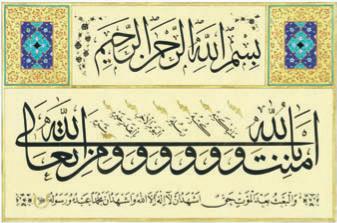 بسم الله الرحمن الرحيم
امنت بالله و و و و و و من الله تعالى
والبعث بعد الموت حق اشهد ان لا اله الا الله واشهد ان محمدا عبده ورسوله